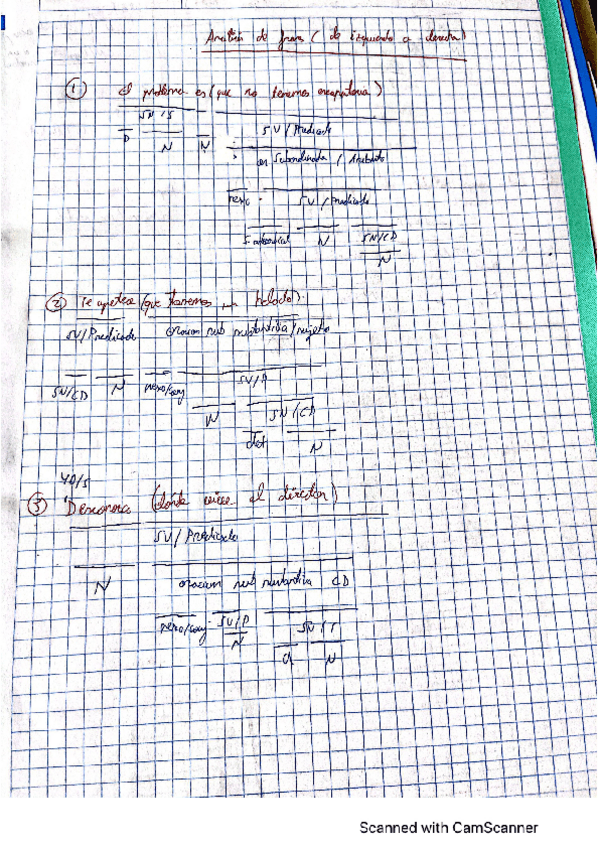 Analisis de frases ( de izquierda a derecha)
① El problema es (que no tenemos escapatoria)
SN/S
D N N SV/Predicado
or Subordinada / Atributo
nexo SV/Predicado
N SN/CD
N
② Te apetece (que tomemos un helado).
SV/Predicado oracion sub sustantiva/sujeto
SN/CD N nexo/conj SV/P
N SN/CD
det N
YO/S
③ Desconozco (dónde vive el director)
SV/Predicado
N oracion sub sustantiva CD
nexo/conj SV/P SN/S
N d N
Scanned with CamScanner